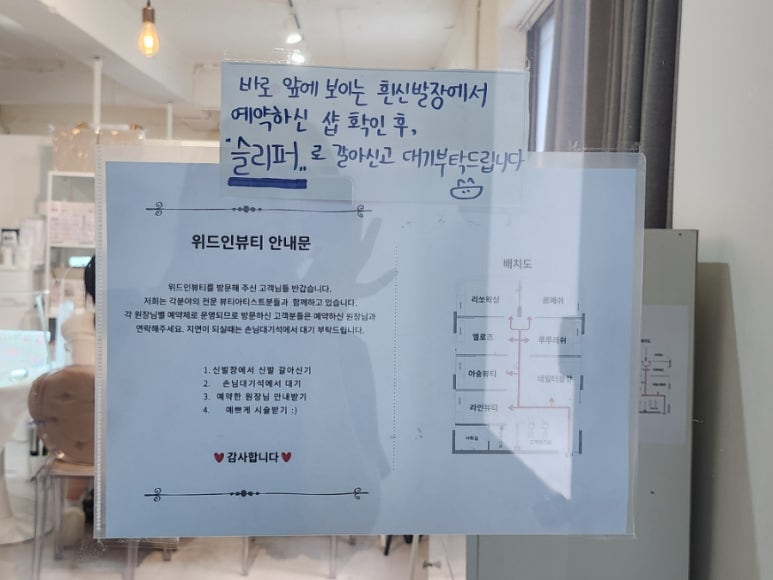 바로 앞에 보이는 흰신발장에서
예약하신 샵 확인 후,
"슬리퍼"로 갈아신고 대기부탁드립니다
위드인뷰티 안내문
위드인뷰티를 방문해 주신 고객님들 반갑습니다.
저희는 각분야의 전문 뷰티아티스트분들과 함께하고 있습니다.
각 원장님별 예약제로 운영되므로 방문하신 고객분들은 예약하신 원장님과
연락해주세요. 지연이 되실때는 손님대기석에서 대기 부탁드립니다.
1. 신발장에서 신발 갈아신기
2. 손님대기석에서 대기
3. 예약한 원장님 안내받기
4 예쁘게 시술받기 :)
감사합니다
배치도
리쏘왁싱
르메쉬
멜로즈
뿌루래쉬
아숨뷰티
라인뷰티